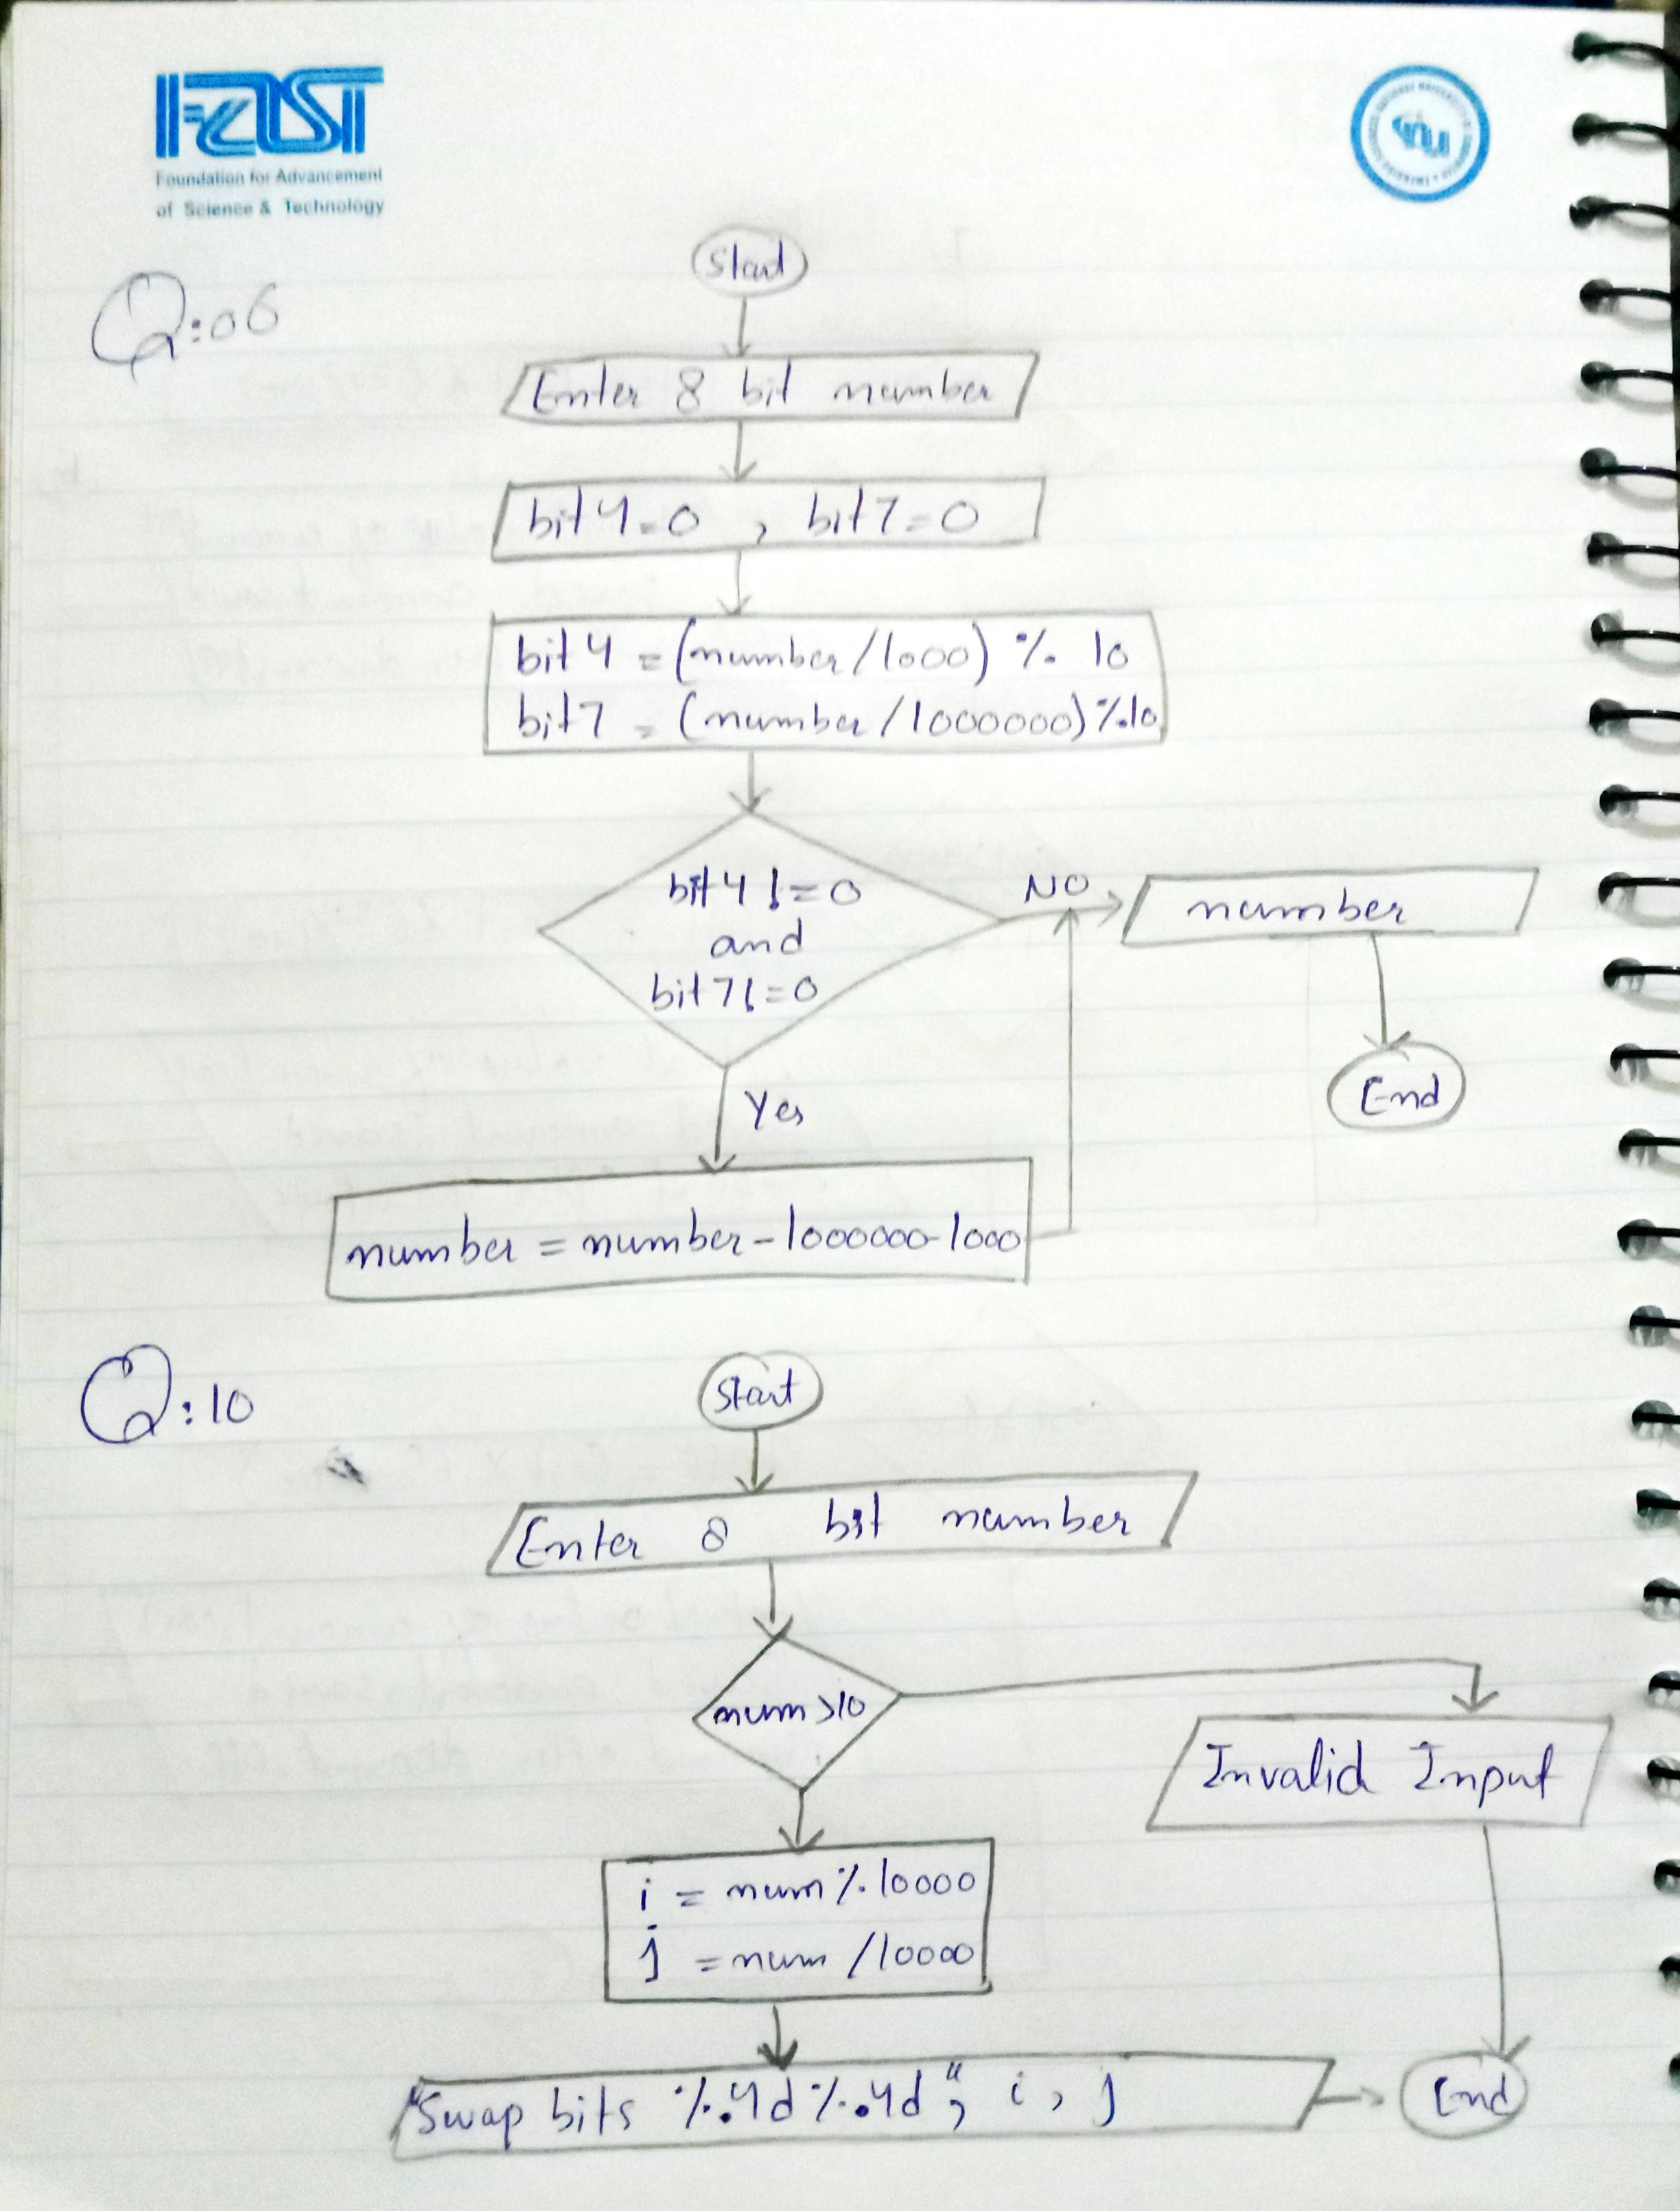 FAST
Foundation for Advancement
of Science & Technology
Q:06
Start
Enter 8 bit number
bit4=0 , bit7=0
bit4 = (number/1000) % 10
bit7 = (number/1000000)%10
bit4!=0
and
bit7!=0
NO
number
End
Yes
number = number-1000000-1000
Q:10
Start
Enter 8 bit number
num>10
Invalid Input
i = num%10000
j = num/10000
"Swap bits %.4d%.4d", i, j
End